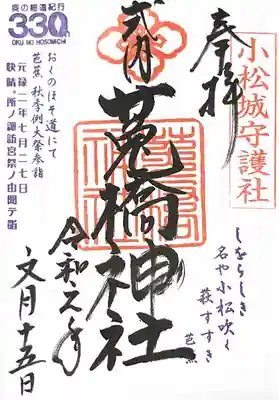 小松城守護社
奉拝
しをらしき
名や小松吹く
萩すすき
芭蕉
式内
菟橋神社
菟橋神社
令和元年
文月十五日
奥の細道紀行
330年
OKU NO HOSOMICHI
おくのほそ道にて
芭蕉 秋季例大祭参詣
元禄二年七月二七日
快晴。所ノ諏訪宮祭ノ由聞テ詣